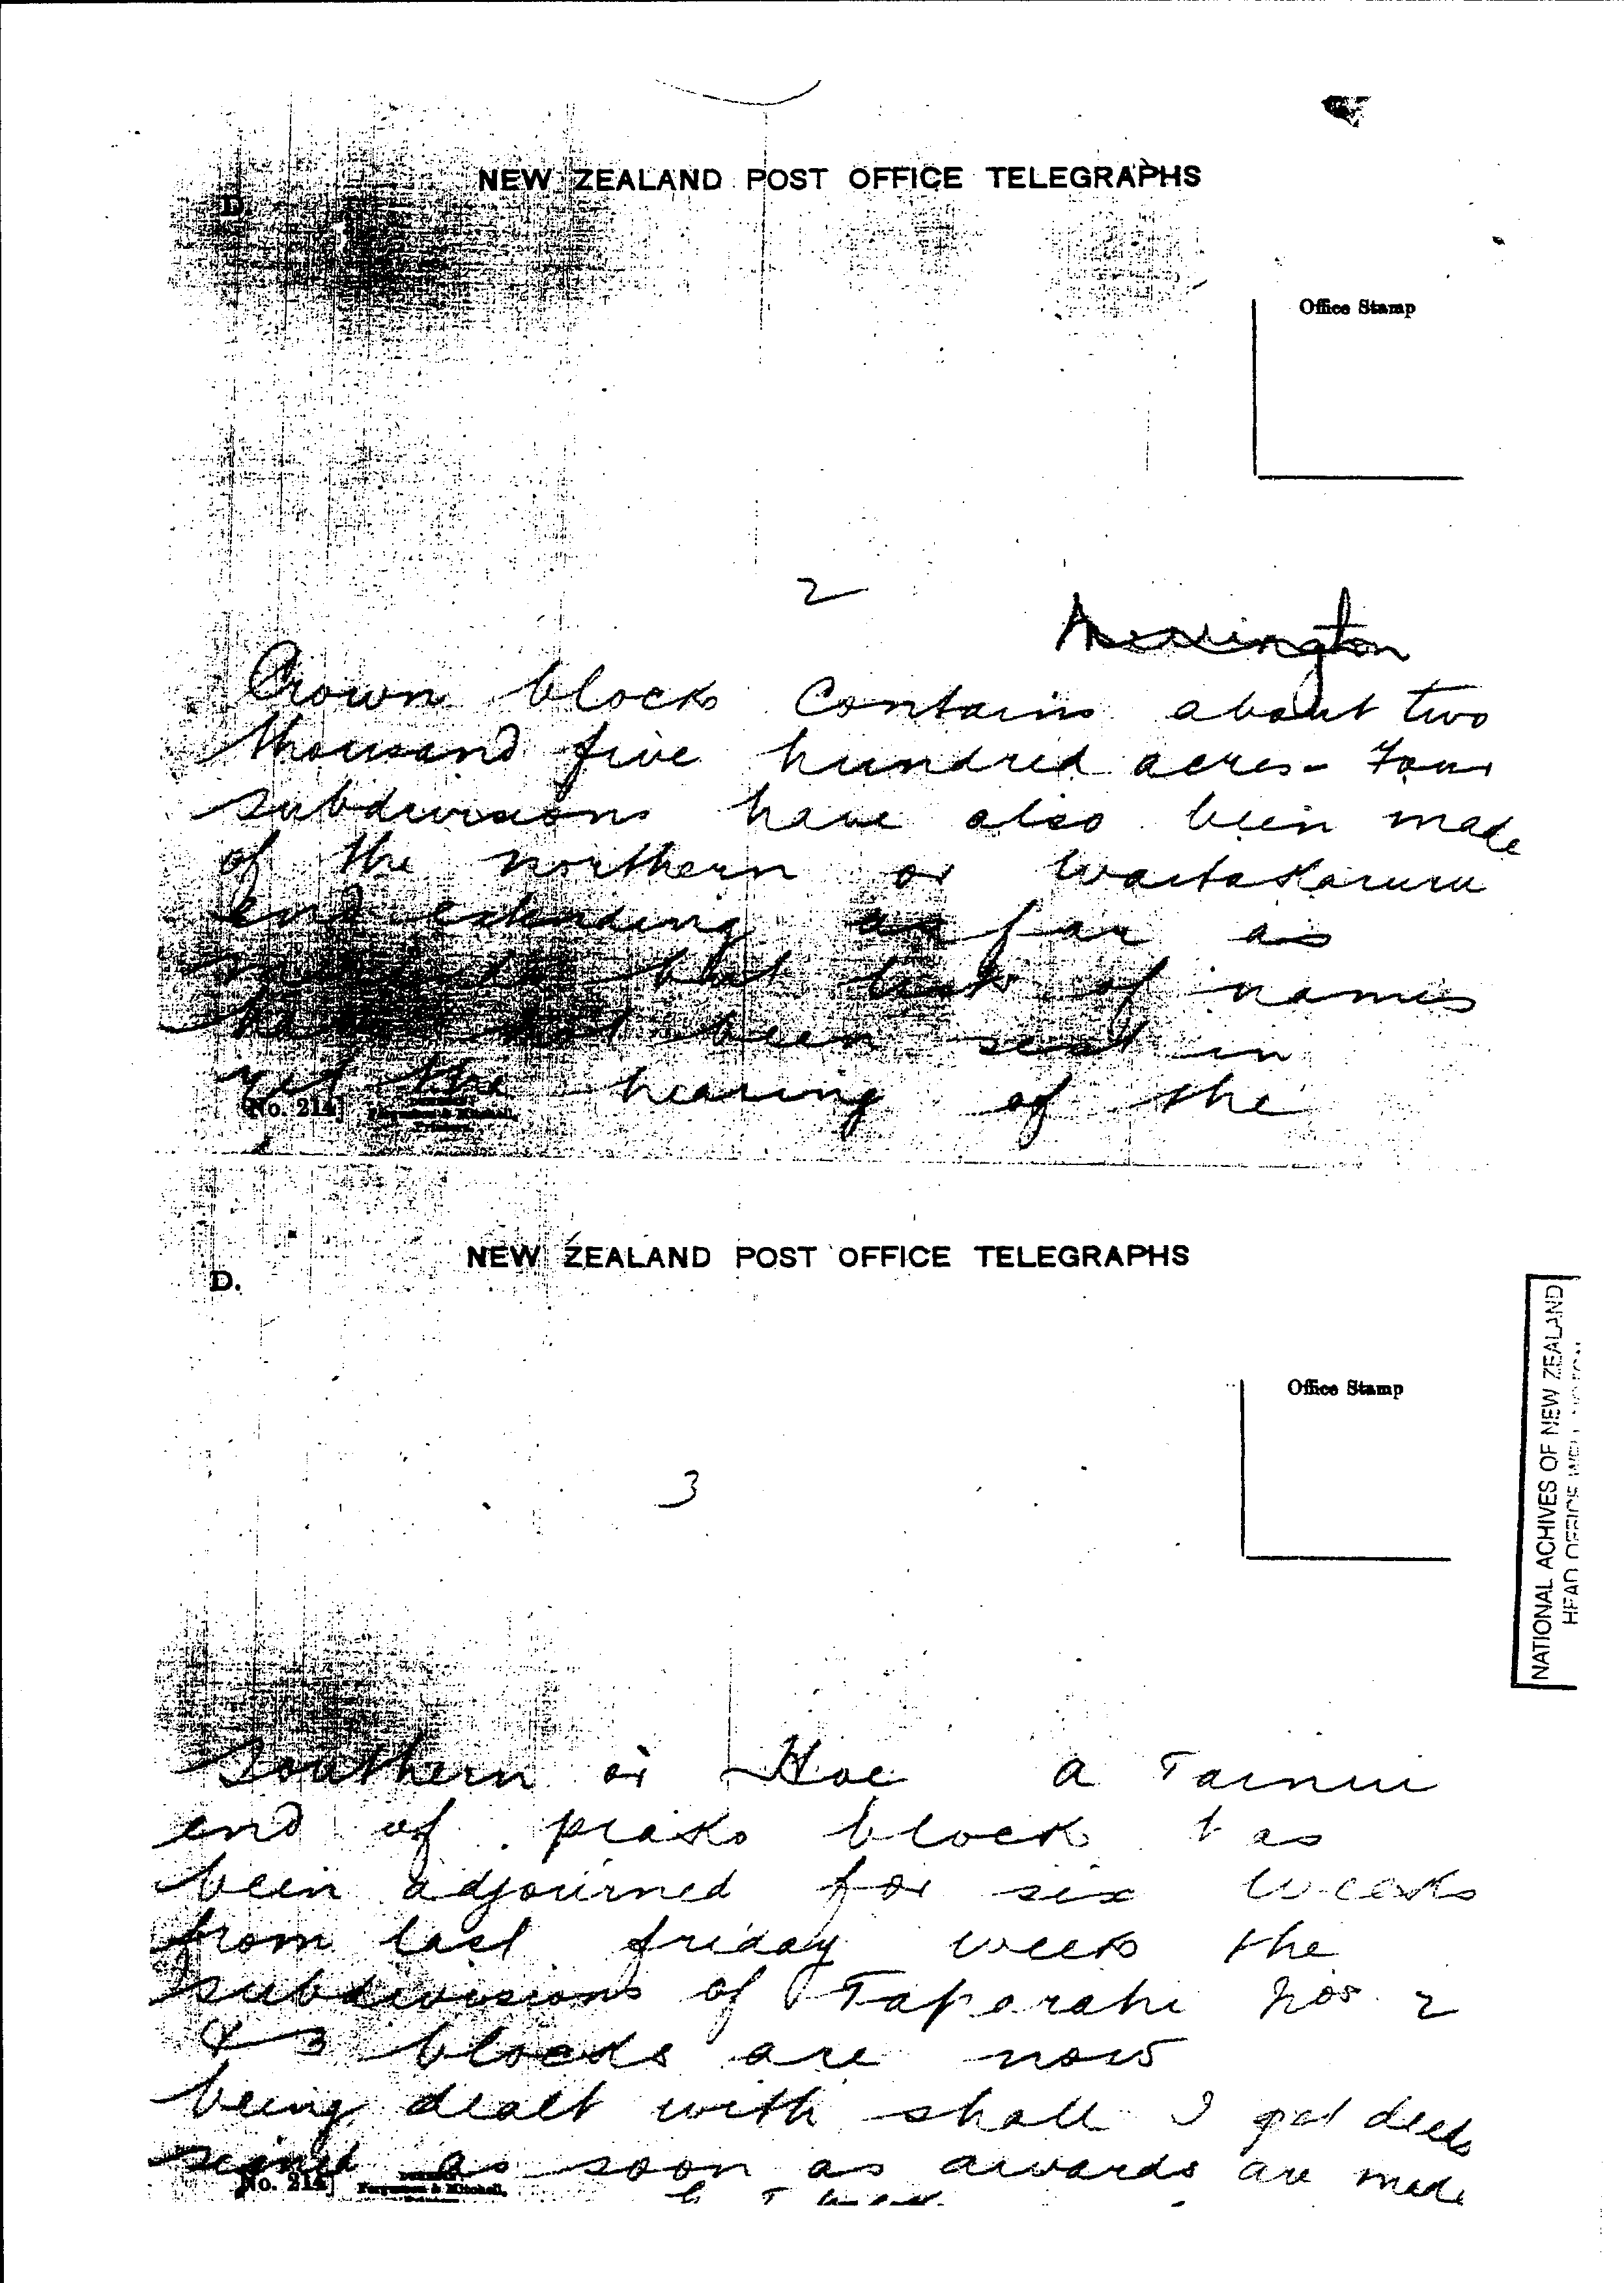 NEW ZEALAND POST OFFICE TELEGRAPHS
D.
Office Stamp
2
Crown block contains about two
thousand five hundred acres - Four
subdivisions have also been made
of the northern or Waitakaruru
end extending as far as
but lists of names
have not been sent in
yet the hearing of the
[No. 214]
Ferguson & Mitchell,
Printers
NEW ZEALAND POST OFFICE TELEGRAPHS
D.
Office Stamp
3
Southern or Hoe a Tainui
end of piako block has
been adjourned for six weeks
from last friday week the
subdivisions of Taparahi Nos 2
& 3 blocks are now
being dealt with shall I get deeds
signed as soon as awards are made
[No. 214]
Ferguson & Mitchell,
Printers
NATIONAL ACHIVES OF NEW ZEALAND
HEAD OFFICE WELLINGTON